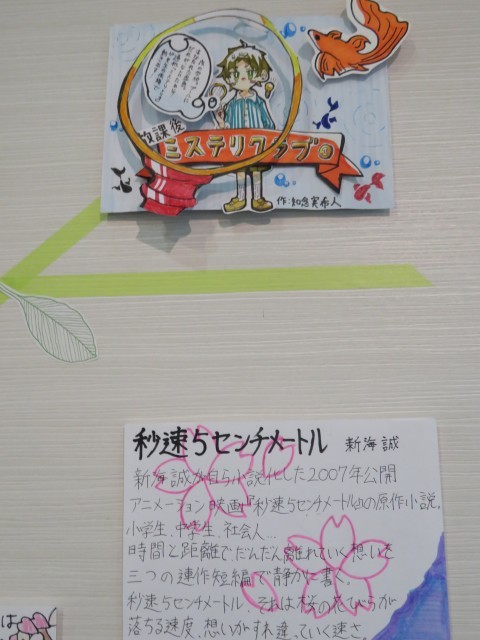 放課後
ミステリクラブ
作:知念実希人
秒速5センチメートル 新海誠
新海誠が自ら小説化した2007年公開
アニメーション映画『秒速5センチメートル』の原作小説。
小学生、中学生、社会人…
時間と距離で、だんだん離れていく想いを
三つの連作短編で静かに書く。
秒速5センチメートル、それは桜の花びらが
落ちる速度、想いがすれ違っていく速さ。
は